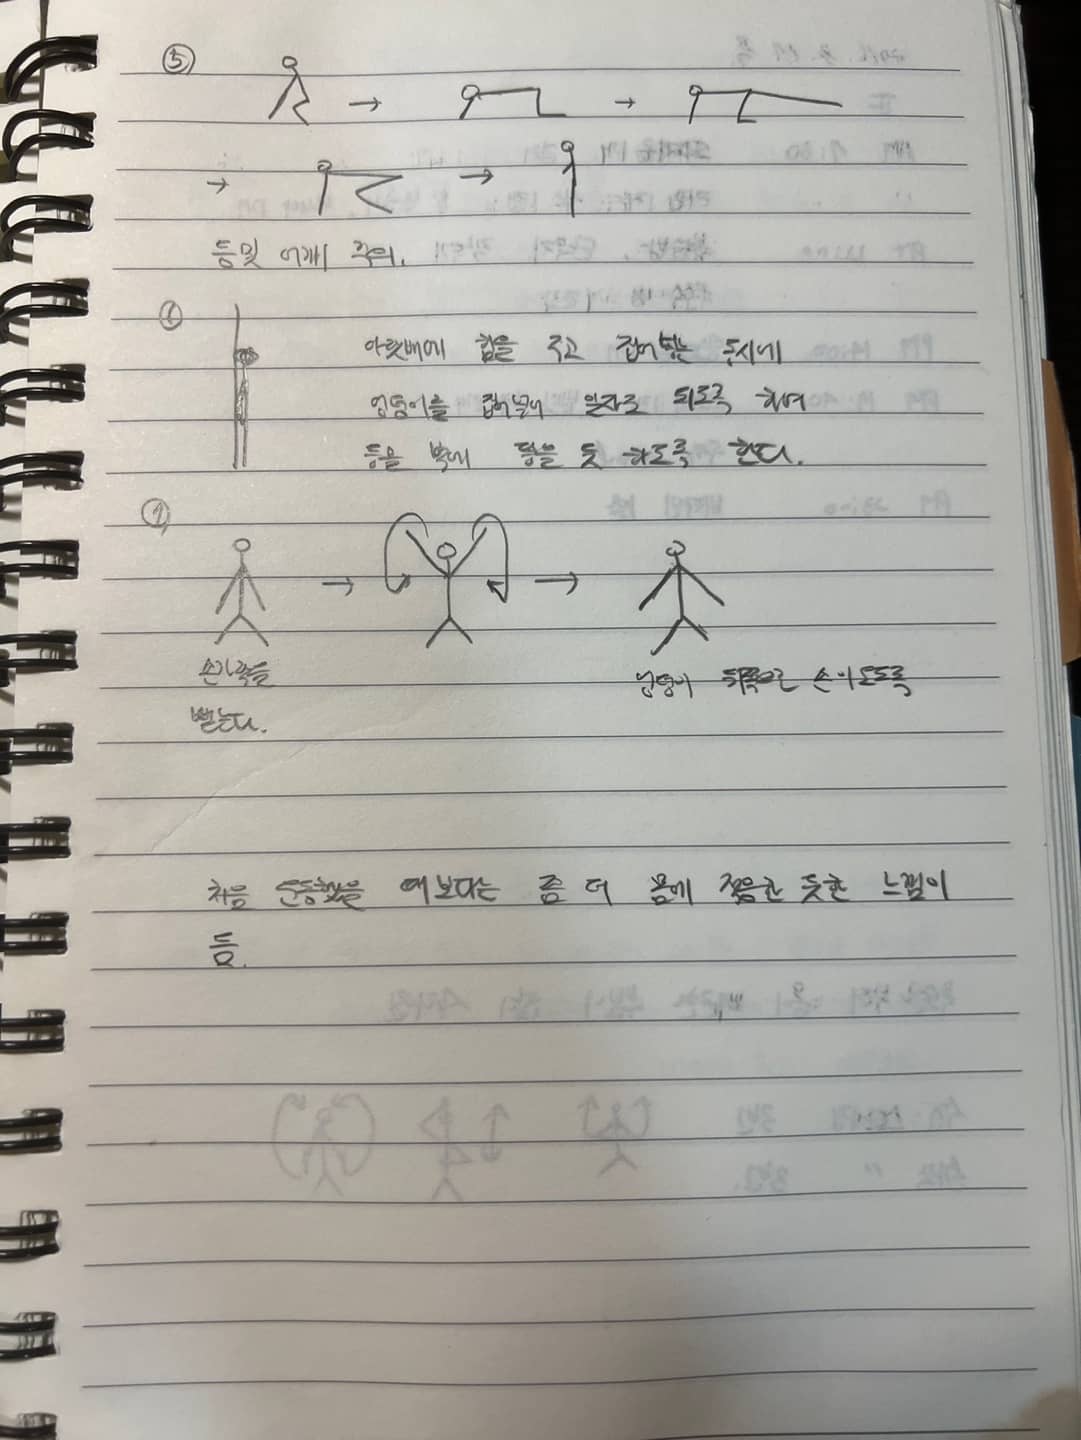 ⑤
등및 어깨 주의.
⑥
아랫배에 힘을 주고 집어넣는 동시에
엉덩이를 집어넣어 일자로 되도록 하여
등을 벽에 닿을 듯 하도록 한다.
⑦
손가락을
뻗는다.
엉덩이 뒤쪽으로 손이 오도록
처음 운동했을 때보다는 좀 더 몸에 적응한 듯한 느낌이
듬.